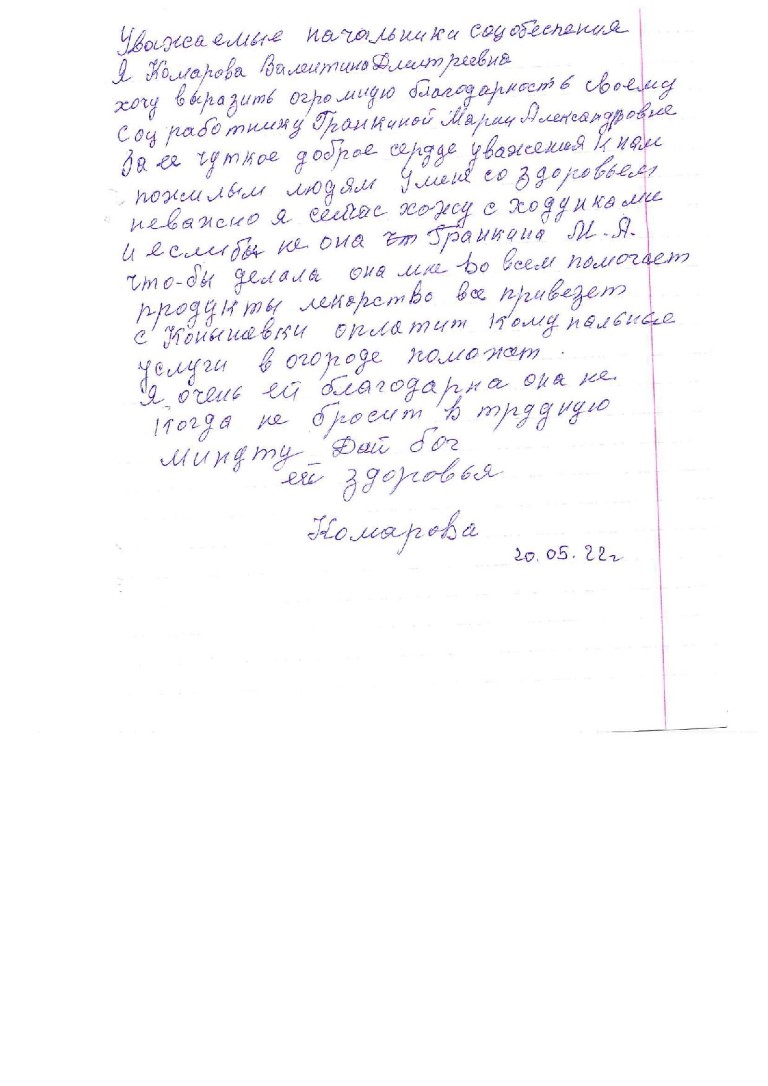 Уважаемые начальники соцобеспения
Я Комарова Валентина Дмитреевна
хочу выразить огромную благодарность своему
Соц работнику Гранкиной Марии Александровне
За ее чуткое доброе сердце уважения к нам
пожилым людям У меня со здоровьем
неважно я сейчас хожу с ходунками
и если бы не она Гранкина М. А.
что-бы делала она мне во всем помогает
продукты лекарство все привезет
с Конышевки оплатит Комунальные
услуги в огороде поможет.
Я очень ей благодарна она не
когда не бросит в трудную
минуту Дай бог
ей здоровья
Комарова
20.05.22г